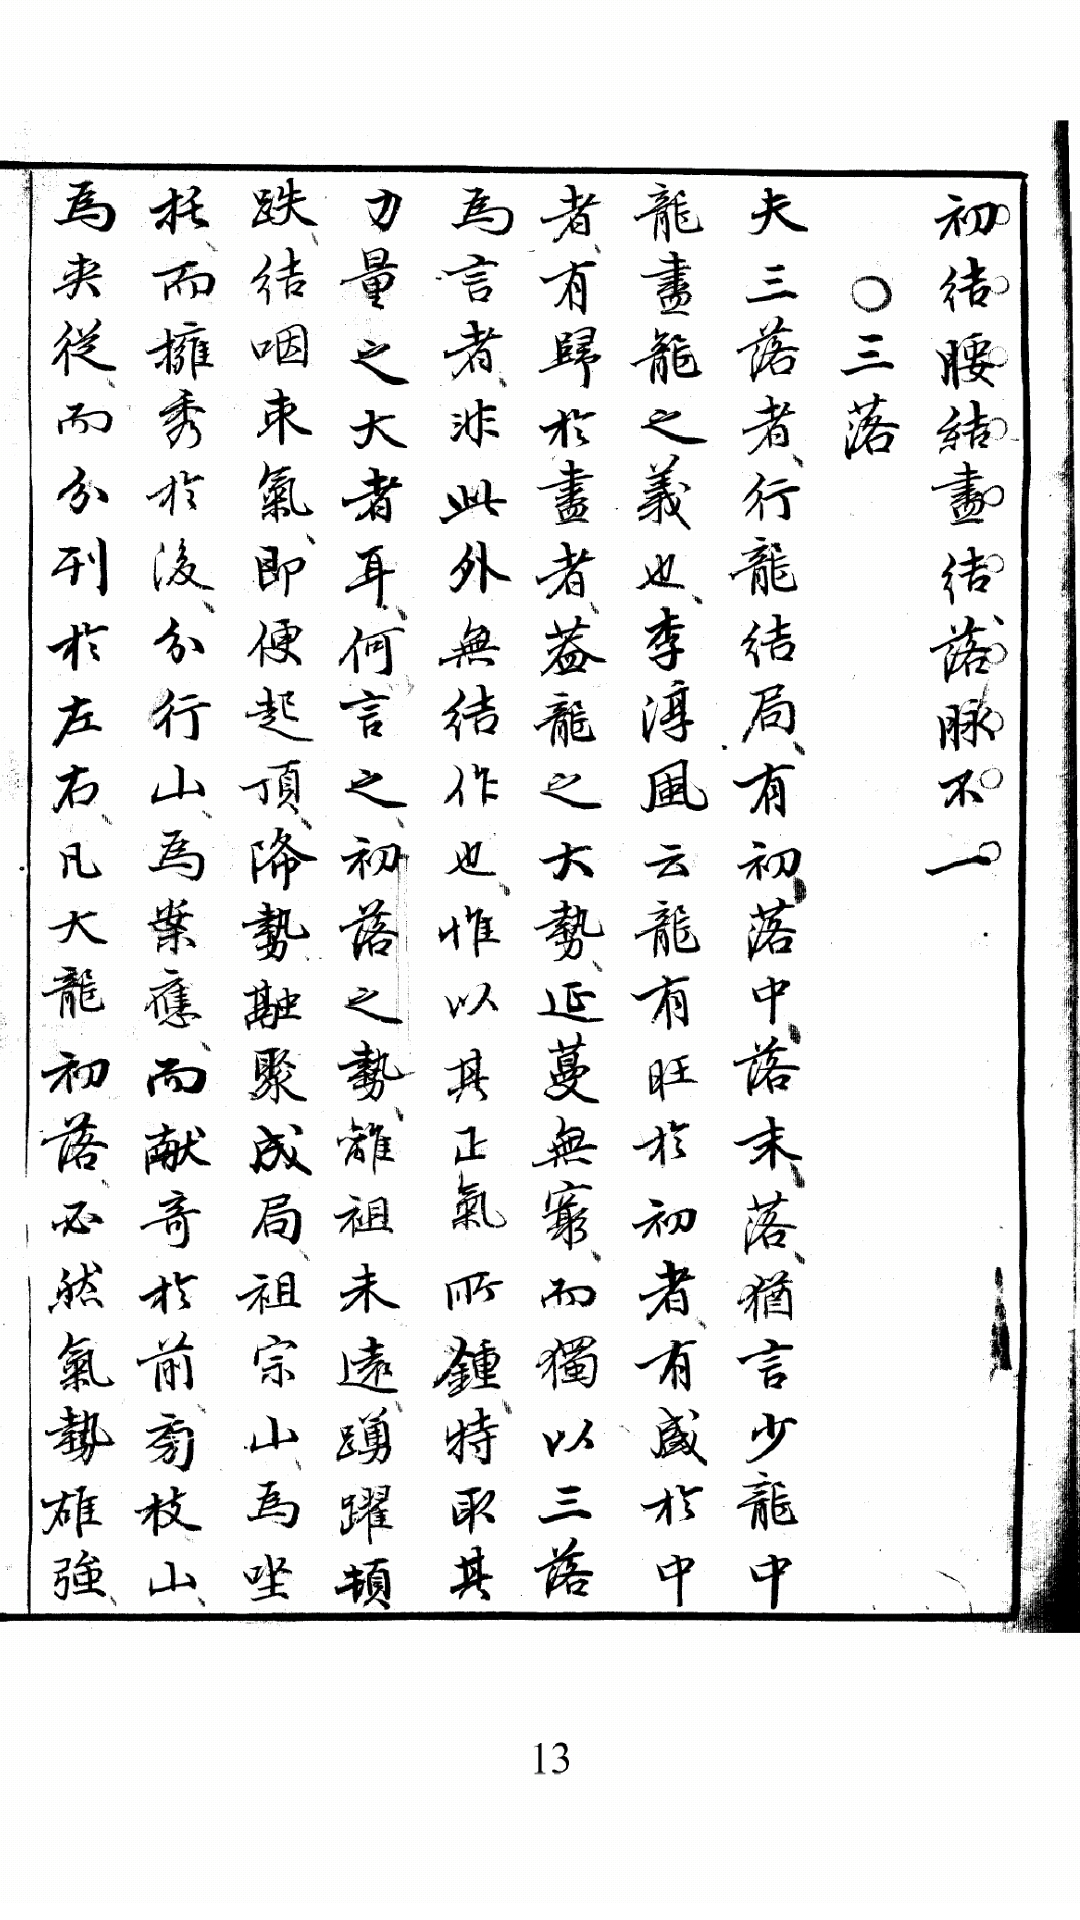 初結腰結盡結落脉不一
〇三落
夫三落者行龍結局有初落中落末落猶言少龍中
龍盡龍之義也李淳風云龍有旺於初者有盛於中
者有歸於盡者蓋龍之大勢延蔓無窮而獨以三落
為言者非此外無結作也惟以其正氣所鍾特取其
力量之大者耳何言之初落之勢離祖未遠踴躍頓
跌結咽束氣即便起頂降勢融聚成局祖宗山為坐
托而擁秀於後分行山為案應而献奇於前旁枝山
為夾從而分列於左右凡大龍初落必然氣勢雄強
13